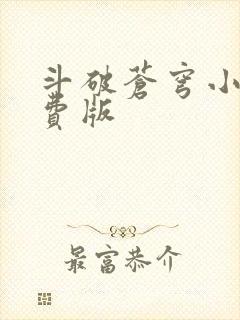 斗破蒼穹小
費版
最富恭介